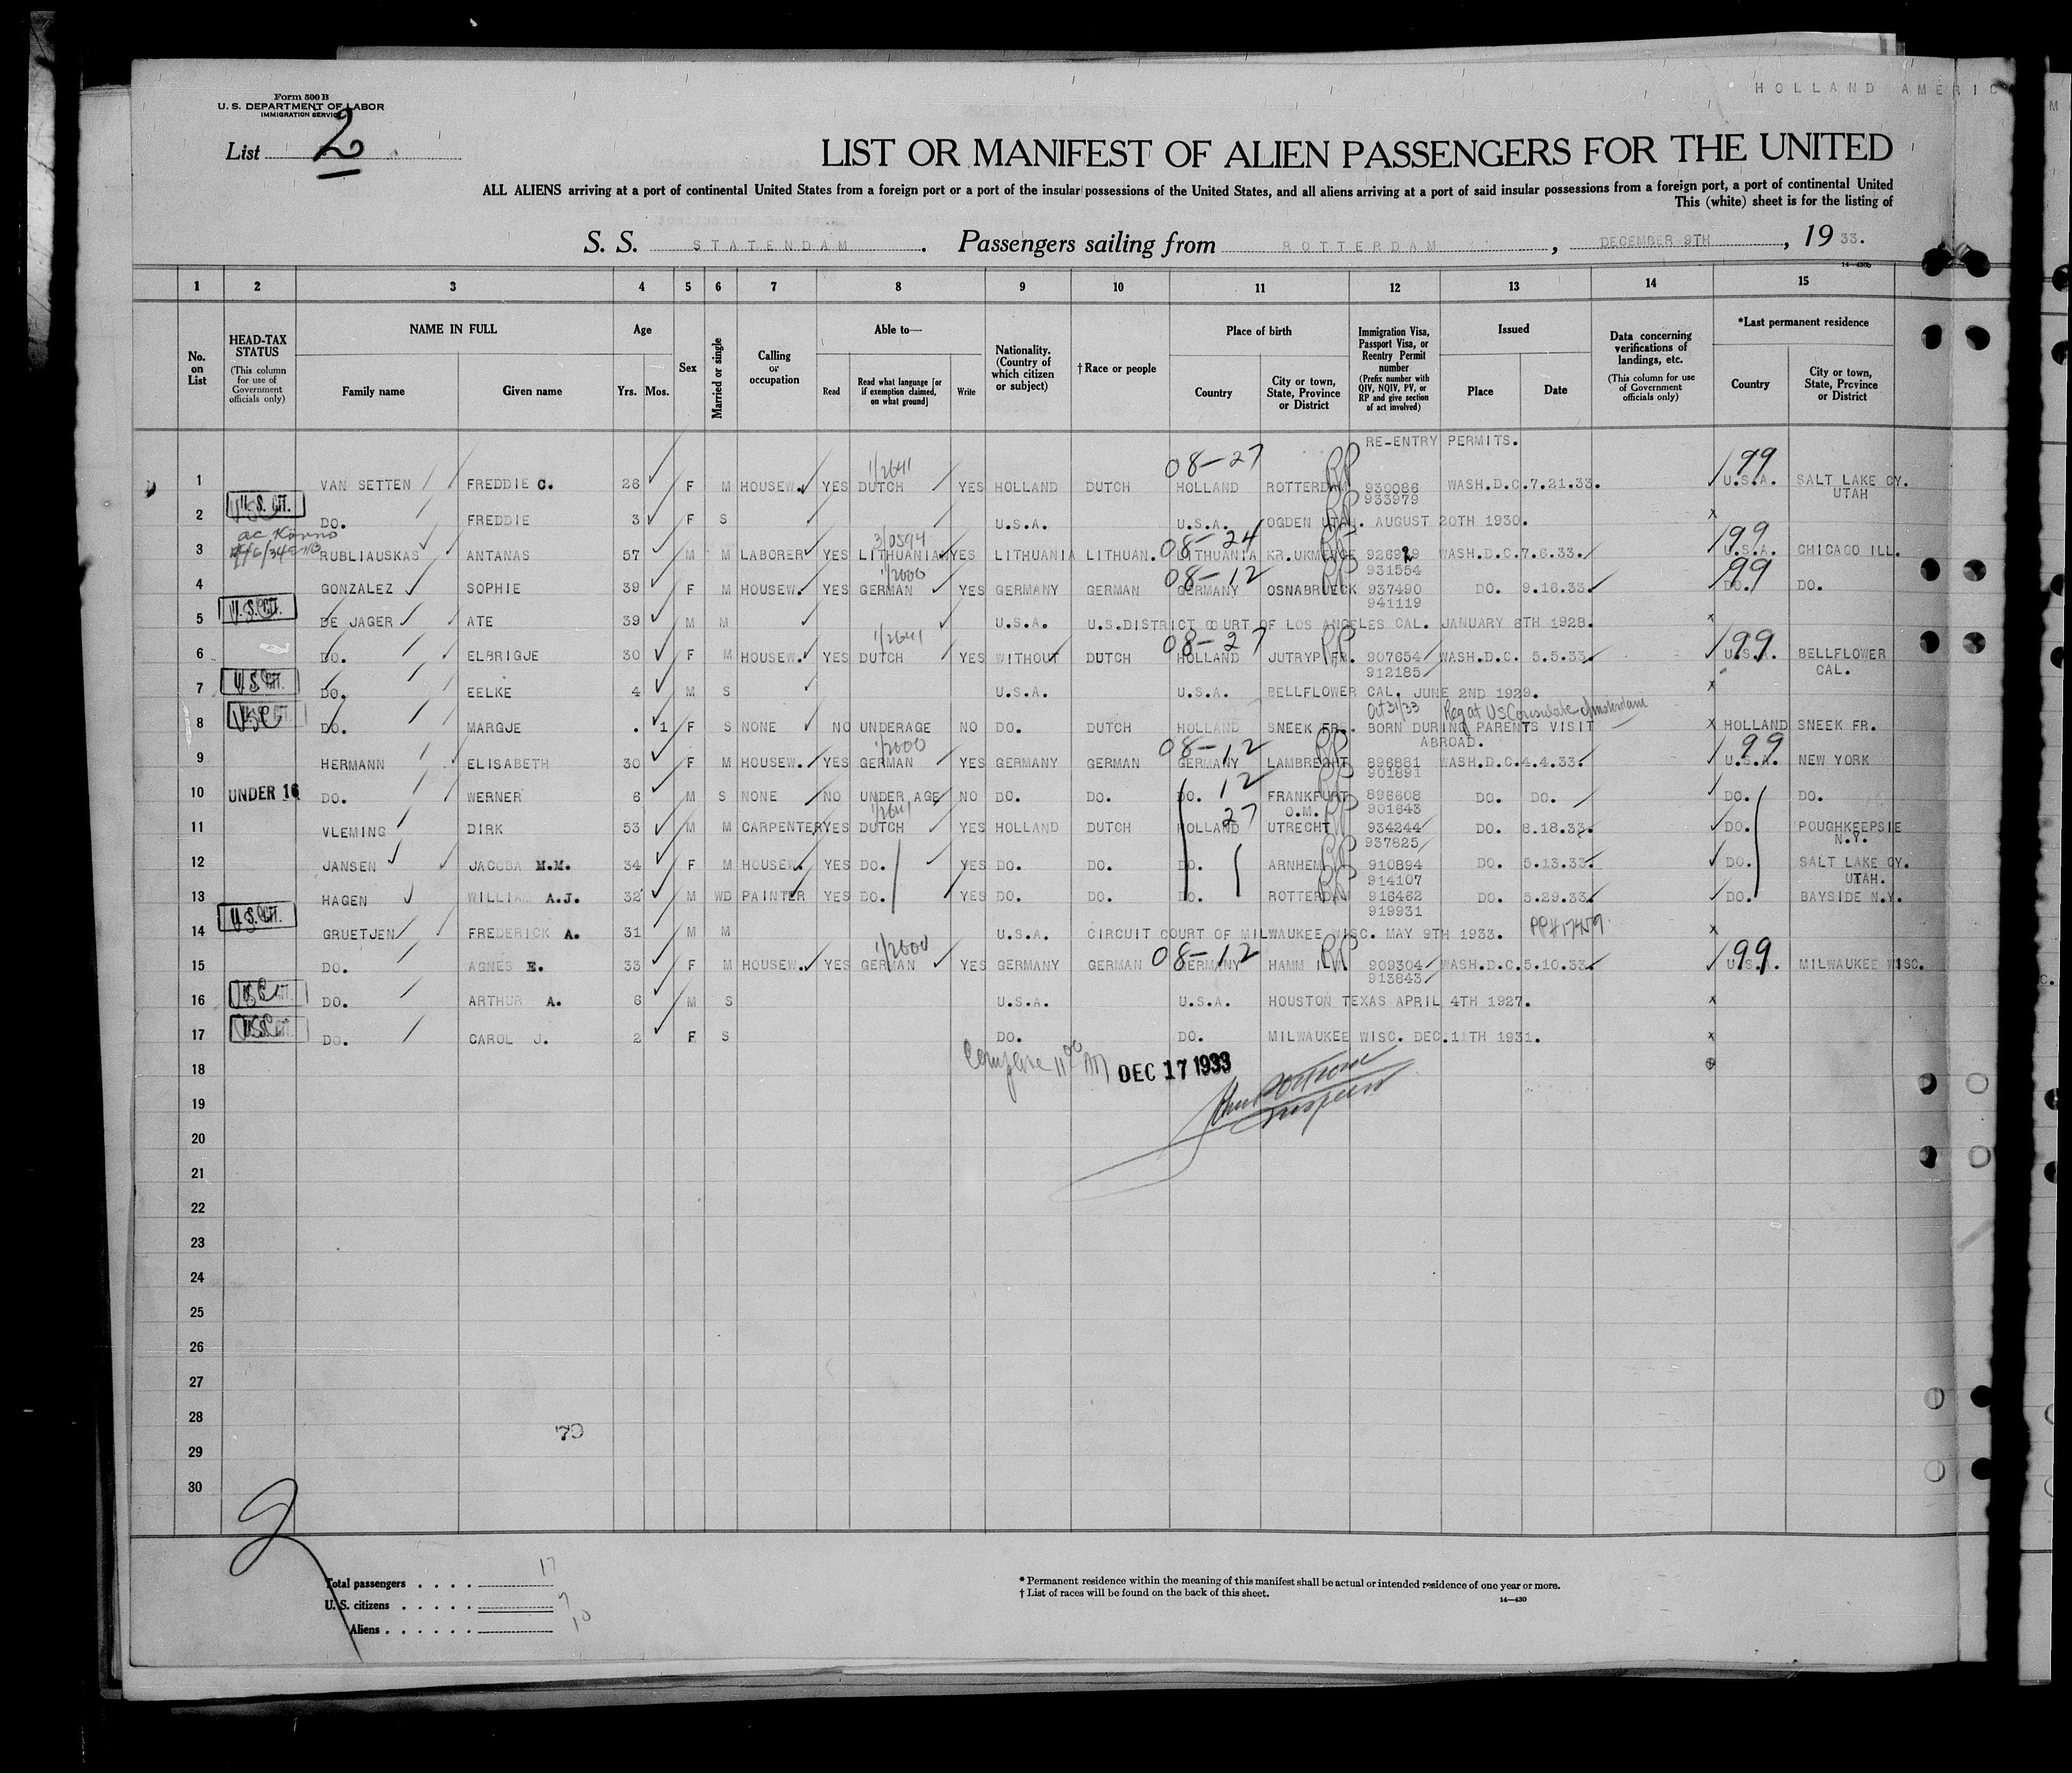 HOLLAND AMERIC
Form 500 B
U. S. DEPARTMENT OF LABOR
IMMIGRATION SERVICE
List 2
LIST OR MANIFEST OF ALIEN PASSENGERS FOR THE UNITED
ALL ALIENS arriving at a port of continental United States from a foreign port or a port of the insular possessions of the United States, and all aliens arriving at a port of said insular possessions from a foreign port, a port of continental United
This (white) sheet is for the listing of
S. S. STATENDAM. Passengers sailing from ROTTERDAM, DECEMBER 9TH, 1933.
14—430b
1 2 3 4 5 6 7 8 9 10 11 12 13 14 15
No. on List
HEAD-TAX STATUS (This column for use of Government officials only)
NAME IN FULL Family name Given name
Age Yrs. Mos.
Sex
Married or single
Calling or occupation
Able to— Read Read what language [or if exemption claimed, on what ground] Write
Nationality. (Country of which citizen or subject)
† Race or people
Place of birth Country City or town, State, Province or District
Immigration Visa, Passport Visa, or Reentry Permit number (Prefix number with QIV, NQIV, PV, or RP and give section of act involved)
Issued Place Date
Data concerning verifications of landings, etc. (This column for use of Government officials only)
*Last permanent residence Country City or town, State, Province or District
RE-ENTRY PERMITS.
1/2641 08-27 RP 99
1 VAN SETTEN FREDDIE C. 26 F M HOUSEW. YES DUTCH YES HOLLAND DUTCH HOLLAND ROTTERDAM 930086 WASH.D.C. 7.21.33. U.S.A. SALT LAKE CY.
933979 UTAH
U.S. CIT.
2 DO. FREDDIE 3 F S U.S.A. U.S.A. OGDEN UTAH. AUGUST 20TH 1930. x
3/0594 08-24 RP 99
3 RUBLIAUSKAS ANTANAS 57 M M LABORER YES LITHUANIAN YES LITHUANIA LITHUAN. LITHUANIA KR.UKMERGE 926929 WASH.D.C. 7.6.33. U.S.A. CHICAGO ILL.
931554
1/2000 08-12 RP 99
4 GONZALEZ SOPHIE 39 F M HOUSEW. YES GERMAN YES GERMANY GERMAN GERMANY OSNABRUECK 937490 DO. 9.16.33. DO. DO.
941119
U.S. CIT.
5 DE JAGER ATE 39 M M U.S.A. U.S.DISTRICT COURT OF LOS ANGELES CAL. JANUARY 6TH 1928. x
1/2641 08-27 RP 99
6 DO. ELBRIGJE 30 F M HOUSEW. YES DUTCH YES WITHOUT DUTCH HOLLAND JUTRYP FR. 907654 WASH.D.C. 5.5.33. U.S.A. BELLFLOWER
912185 CAL.
U.S. CIT.
7 DO. EELKE 4 M S U.S.A. U.S.A. BELLFLOWER CAL. JUNE 2ND 1929. x
Oct 31/33 Reg at US Consulate Amsterdam
U.S. CIT.
8 DO. MARGJE . 1 F S NONE NO UNDERAGE NO DO. DUTCH HOLLAND SNEEK FR. BORN DURING PARENTS VISIT x HOLLAND SNEEK FR.
ABROAD.
1/2000 08-12 RP 99
9 HERMANN ELISABETH 30 F M HOUSEW. YES GERMAN YES GERMANY GERMAN GERMANY LAMBRECHT 896881 WASH.D.C. 4.4.33. U.S.A. NEW YORK
901891
12 RP
10 UNDER 16 DO. WERNER 6 M S NONE NO UNDER AGE NO DO. DO. DO. FRANKFURT 896608 DO. DO. DO. DO.
O.M. 901643
1/2641 27 RP
11 VLEMING DIRK 53 M M CARPENTER YES DUTCH YES HOLLAND DUTCH HOLLAND UTRECHT 934244 DO. 8.18.33. DO. POUGHKEEPSIE
937625 N.Y.
12 JANSEN JACOBA M.M. 34 F M HOUSEW. YES DO. YES DO. DO. DO. ARNHEM RP 910894 DO. 5.13.33. DO. SALT LAKE CY.
914107 UTAH.
13 HAGEN WILLIAM A.J. 32 M WD PAINTER YES DO. YES DO. DO. DO. ROTTERDAM RP 916462 DO. 5.29.33. DO. BAYSIDE N.Y.
919931
U.S. CIT.
14 GRUETJEN FREDERICK A. 31 M M U.S.A. CIRCUIT COURT OF MILWAUKEE WISC. MAY 9TH 1933. x
1/2000 08-12 RP 99
15 DO. AGNES E. 33 F M HOUSEW. YES GERMAN YES GERMANY GERMAN GERMANY HAMM 909304 WASH.D.C. 5.10.33. U.S.A. MILWAUKEE WISC.
913843
U.S. CIT.
16 DO. ARTHUR A. 6 M S U.S.A. U.S.A. HOUSTON TEXAS APRIL 4TH 1927. x
U.S. CIT.
17 DO. CAROL J. 2 F S DO. DO. MILWAUKEE WISC. DEC.11TH 1931. x
18 DEC 17 1933
19
20
21
22
23
24
25
26
27
28
29
30
2
Total passengers . . . . 17
U.S. citizens . . . . . 7
Aliens . . . . . . 10
* Permanent residence within the meaning of this manifest shall be actual or intended residence of one year or more.
† List of races will be found on the back of this sheet.
14—430